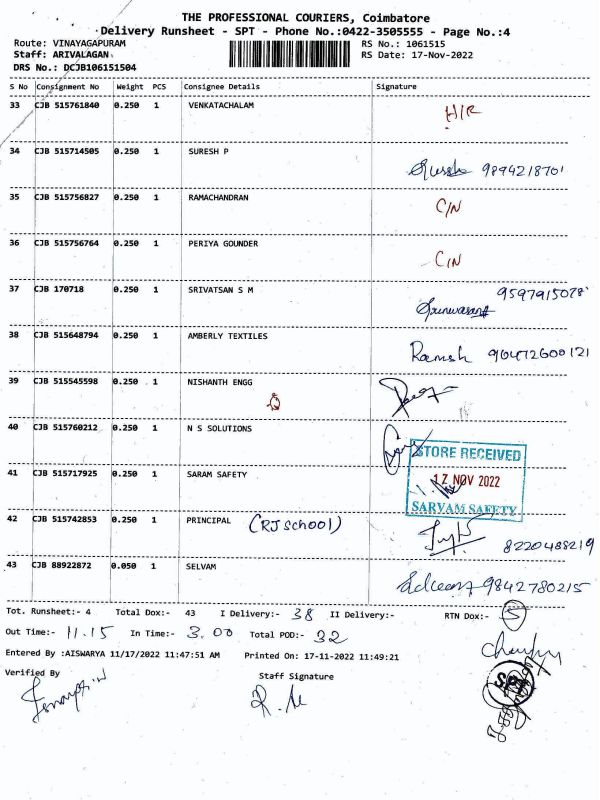 THE PROFESSIONAL COURIERS, Coimbatore
Delivery Runsheet - SPT - Phone No.:0422-3505555 - Page No.:4
Route: VINAYAGAPURAM
RS No.: 1061515
Staff: ARIVALAGAN
RS Date: 17-Nov-2022
DRS No.: DCJB106151504
S No Consignment No Weight PCS Consignee Details Signature
33 CJB 515761840 0.250 1 VENKATACHALAM H/R
34 CJB 515714505 0.250 1 SURESH P 9894218701
35 CJB 515756827 0.250 1 RAMACHANDRAN C/N
36 CJB 515756764 0.250 1 PERIYA GOUNDER C/N
37 CJB 170718 0.250 1 SRIVATSAN S M
38 CJB 515648794 0.250 1 AMBERLY TEXTILES Ramsh
39 CJB 515545598 0.250 1 NISHANTH ENGG
40 CJB 515760212 0.250 1 N S SOLUTIONS
STORE RECEIVED
41 CJB 515717925 0.250 1 SARAM SAFETY 17 NOV 2022
SARVAM SAFETY
42 CJB 515742853 0.250 1 PRINCIPAL (RJ School)
8220488219
43 CJB 88922872 0.050 1 SELVAM 9842780215
Tot. Runsheet:- 4 Total Dox:- 43 I Delivery:- 38 II Delivery:- RTN Dox:- 5
Out Time:- 11.15 In Time:- 3.00 Total POD:- 32
Entered By :AISWARYA 11/17/2022 11:47:51 AM Printed On: 17-11-2022 11:49:21
Verified By Staff Signature
SPT